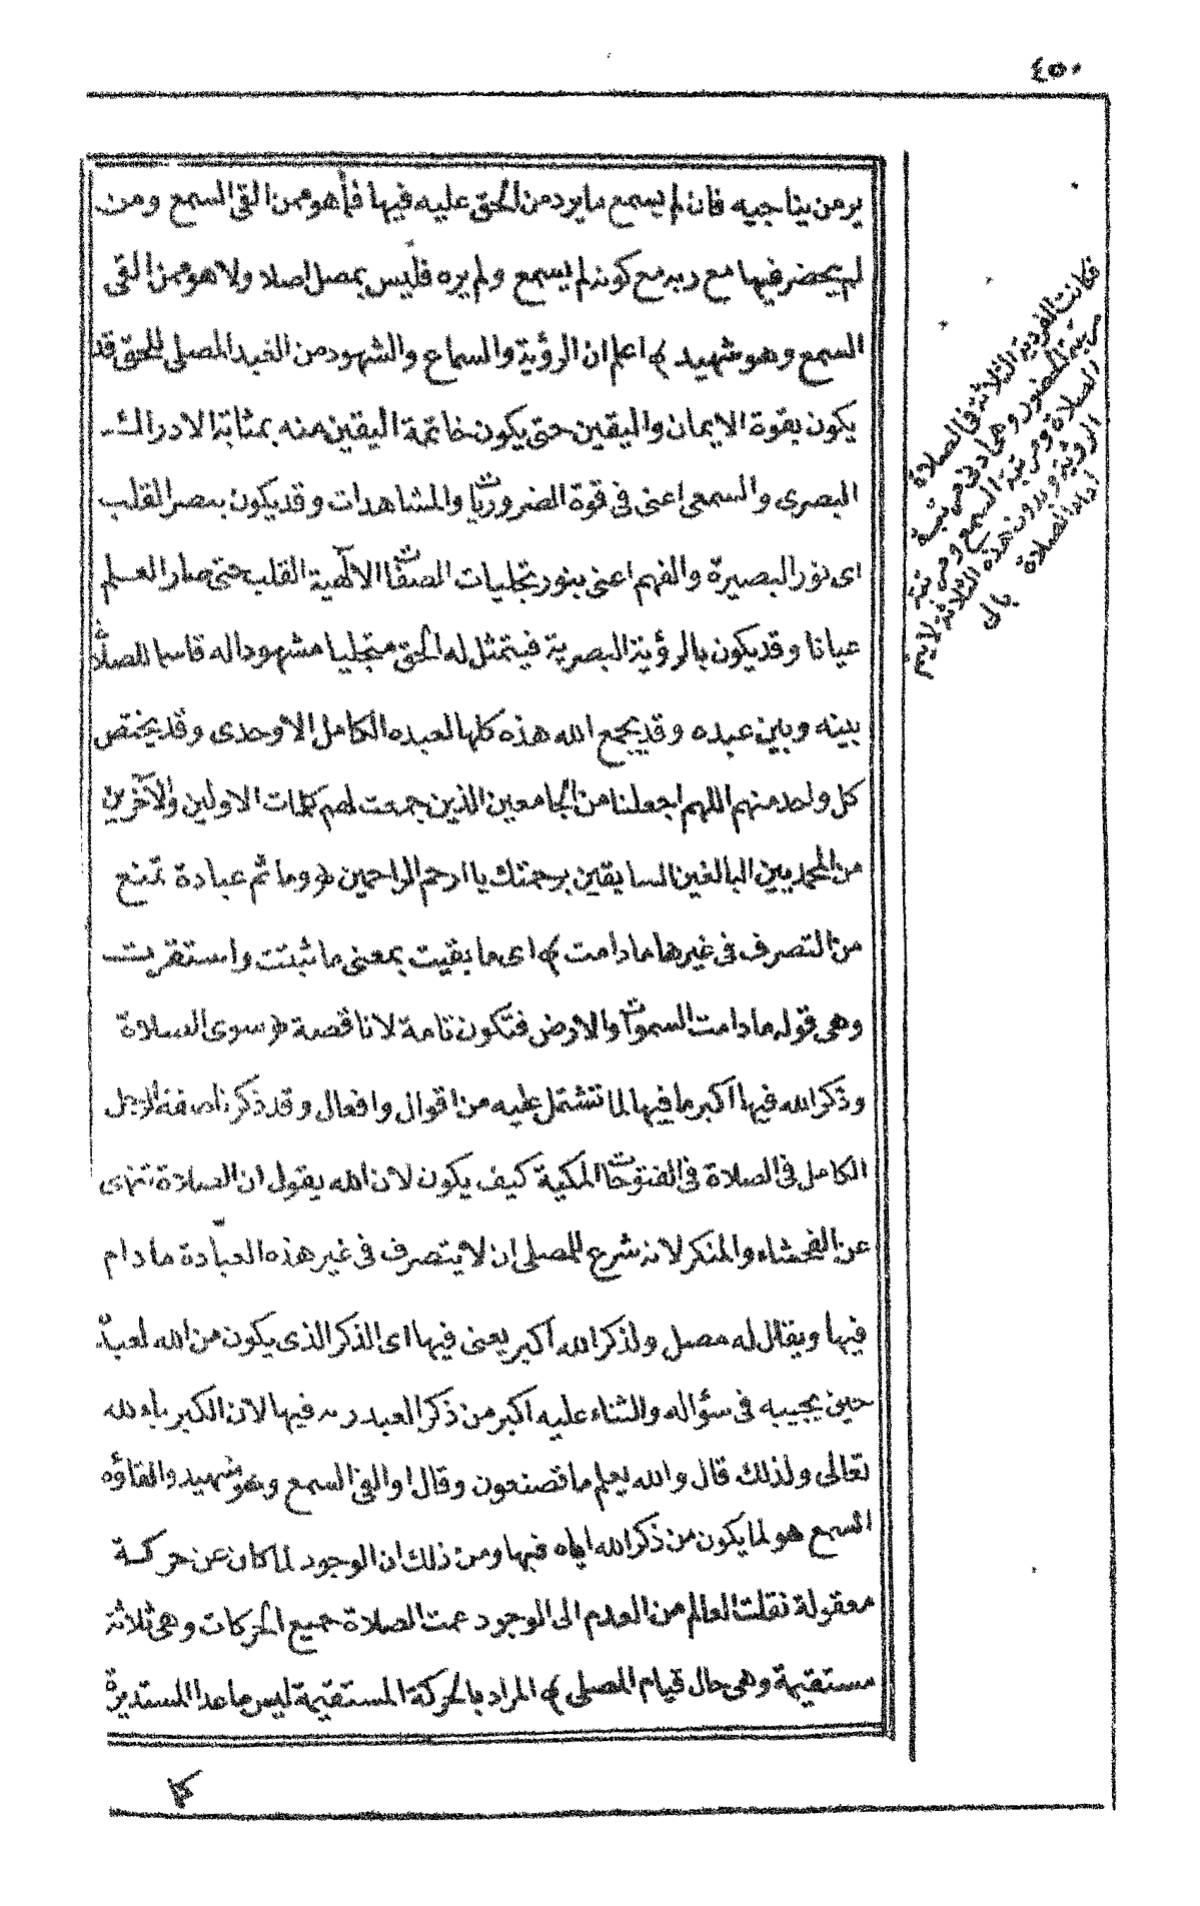 ٤٥٠
ير من يناجيه فان لم يسمع ما يرد من الحق عليه فيها فما هو ممن القى السمع ومن
لم يحضر فيها مع ربه مع كونه لم يسمع ولم يره فليس بمصل اصلا ولا هو ممن القى
السمع وهو شهيد ﴾ اعلم ان الرؤية والسماع والشهود من العبد المصلى للحق قد
يكون بقوة الايمان واليقين حتى يكون خاتمة اليقين منه بمثابة الادراك
البصرى والسمعى اعنى فى قوة الضروريات والمشاهدات وقد يكون ببصر القلب
اى نور البصيرة والفهم اعنى بنور تجليات الصفات الالهية القلب حتى صار العلم
عيانا وقد يكون بالرؤية البصرية فيتمثل له الحق متجليا مشهودا له قاسما للصلاة
بينه وبين عبده وقد يجمع الله هذه كلها لعبده الكامل الاوحدى وقد يختص
كل واحد منهم اللهم اجعلنا من الجامعين الذين جمعت لهم كمالات الاولين والآخرين
من المحمديين البالغين السابقين برحمتك يا ارحم الراحمين ﴿ وما ثم عبادة تمنع
من التصرف فى غيرها ما دامت ﴾ اى ما بقيت بمعنى ما ثبتت واستقرت
وهى قوله ما دامت السموات والارض فتكون تامة لا ناقصة ﴿ سوى الصلاة
وذكر الله فيها اكبر ما فيها لما تشتمل عليه من اقوال وافعال وقد ذكرنا صفة الرجل
الكامل فى الصلاة فى الفتوحات المكية كيف يكون لان الله يقول ان الصلاة تنهى
عن الفحشاء والمنكر لانه شرع للمصلى ان لا يتصرف فى غير هذه العبادة ما دام
فيها ويقال له مصل ولذكر الله اكبر يعنى فيها اى الذكر الذى يكون من الله لعبده
حين يجيبه فى سؤاله والثناء عليه اكبر من ذكر العبد ربه فيها لان الكبرياء لله
تعالى ولذلك قال والله يعلم ما تصنعون وقال او القى السمع وهو شهيد والقاؤه
السمع هو لما يكون من ذكر الله اياه فيها ومن ذلك ان الوجود لما كان عن حركة
معقولة نقلت العالم من العدم الى الوجود عمت الصلاة جميع الحركات وهى ثلاثة
مستقيمة وهى حال قيام المصلى ﴾ المراد بالحركة المستقيمة ليس ما عدا المستديرة
كما
فكانت الفردية الثلاثة فى الصلاة
مرتبة الحضور وهى ادنى مرتبة
الصلاة ومرتبة السمع ومرتبة
الرؤية وبدون هذه الثلاثة لا يتم
اداء الصلاة بالى